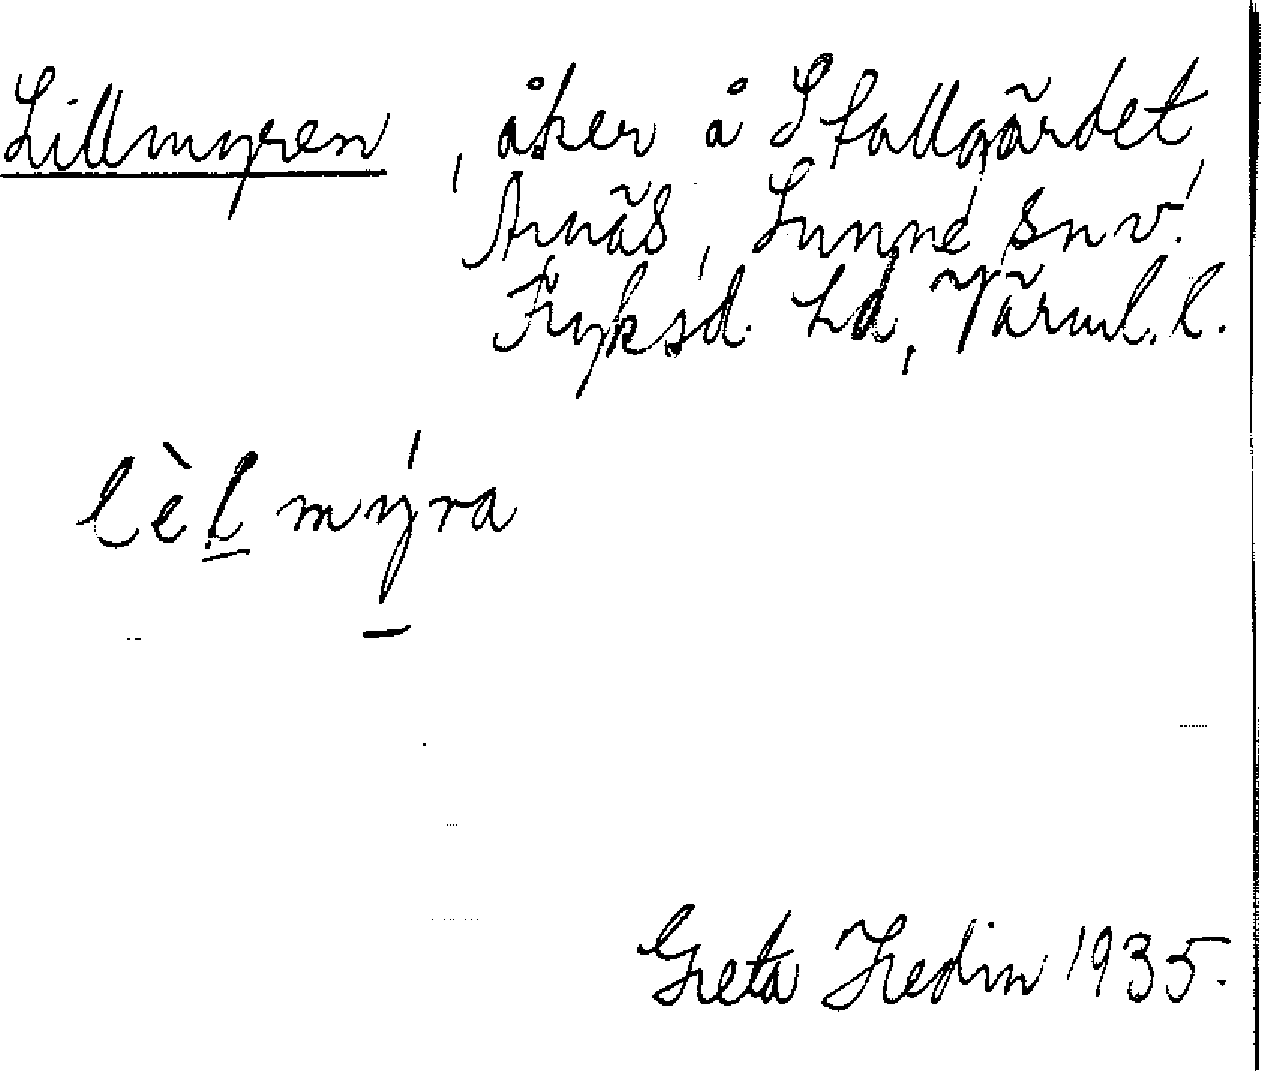 Lillmyren, åker å Stallgärdet,
Arnäs, Sunne sn v.
Fryksd. hd, Värml. l.
lèl mýra
Greta Hedin 1935.